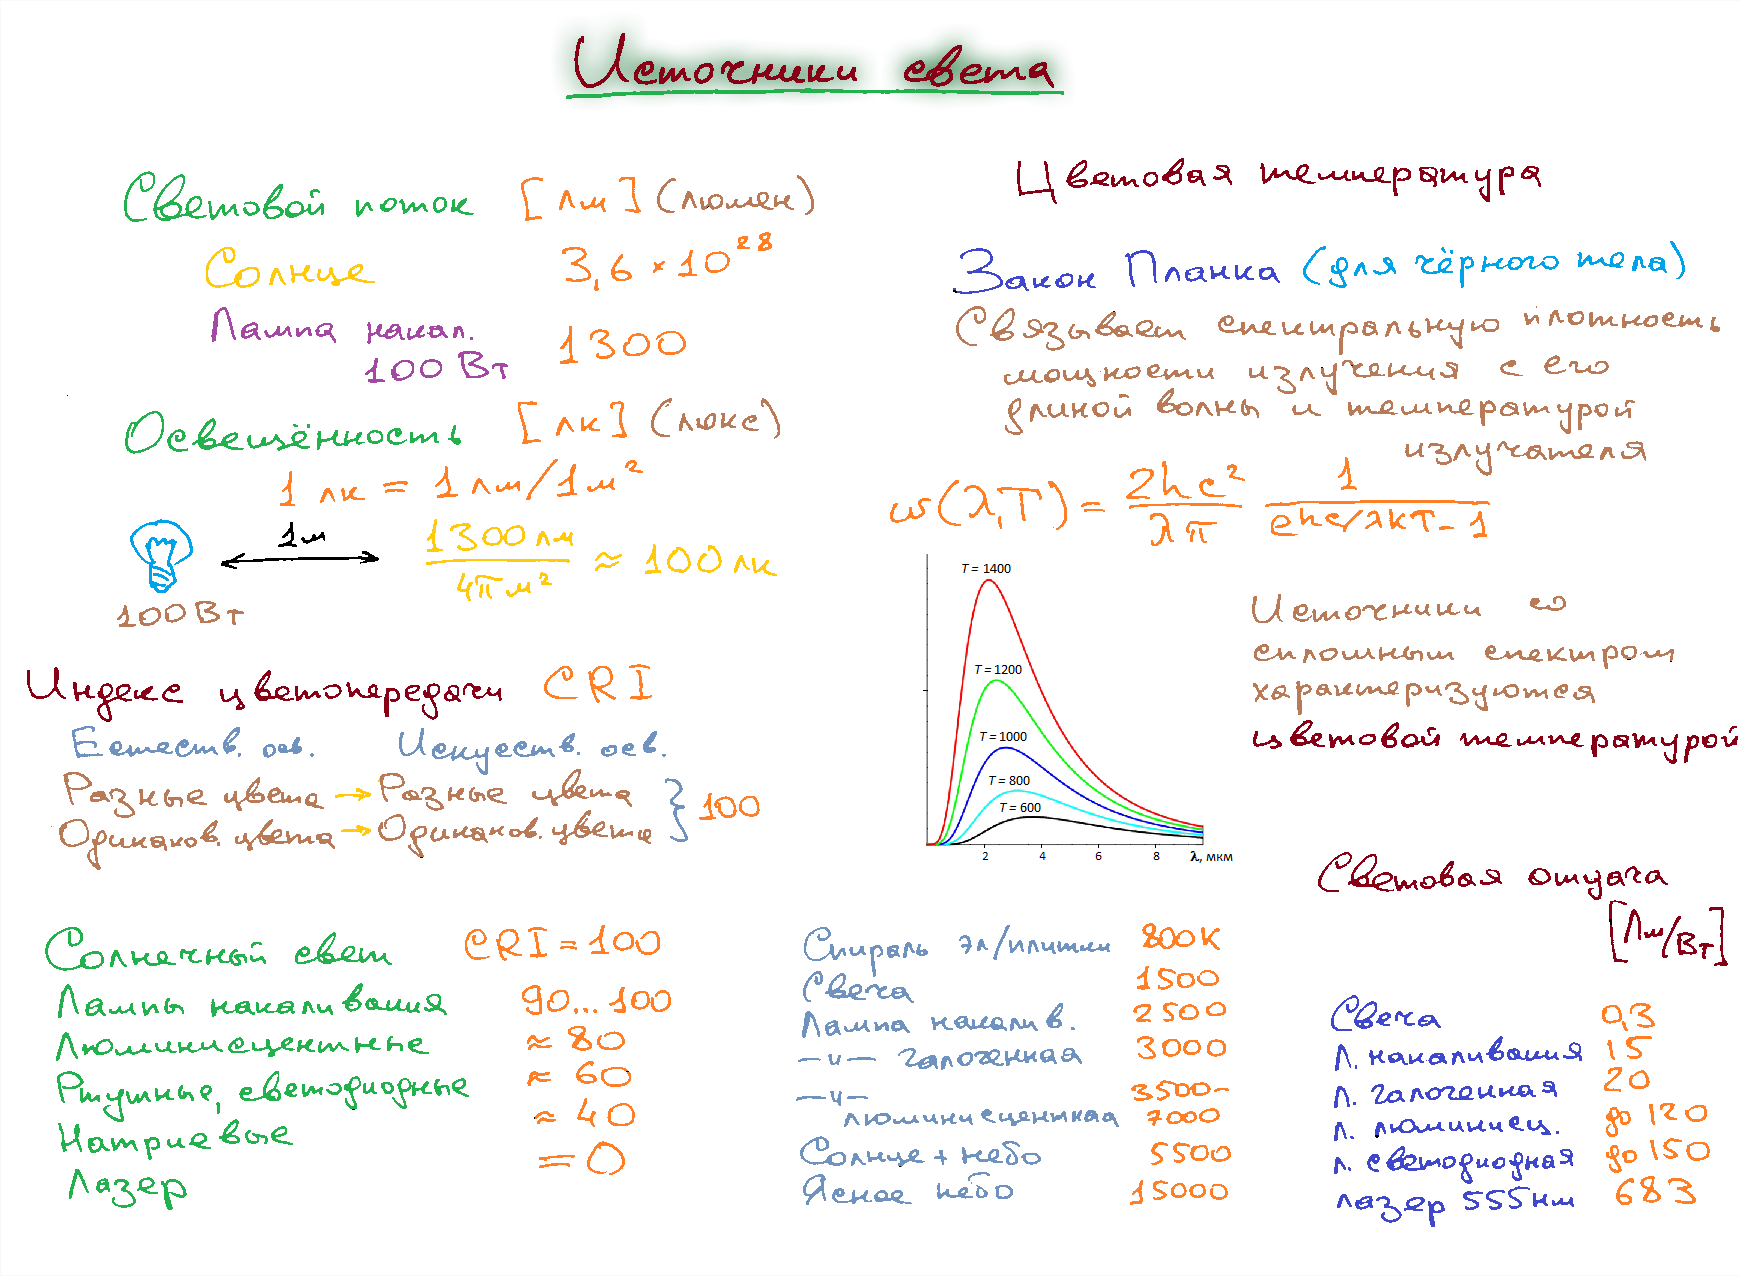 Источники света
Световой поток [лм] (люмен)
Солнце 3,6 × 10²⁸
Лампа накал. 1300
100 Вт
Освещённость [лк] (люкс)
1 лк = 1 лм/1м²
1м
1300 лм / 4π м² ≈ 100 лк
100 Вт
Индекс цветопередачи CRI
Естеств. осв. Искуств. осв.
Разные цвета → Разные цвета
Одинаков. цвета → Одинаков. цвета } 100
Солнечный свет CRI = 100
Лампы накаливания 90...100
Люминисцентные ≈ 80
Ртутные, светодиодные ≈ 60
Натриевые ≈ 40
Лазер = 0
Цветовая температура
Закон Планка (для чёрного тела)
Связывает спектральную плотность
мощности излучения с его
длиной волны и температурой
излучателя
w(λ,T) = 2hc²/λπ 1/ehc/λkT-1
T = 1400
T = 1200
T = 1000
T = 800
T = 600
2 4 6 8 λ, мкм
Источники со
сплошным спектром
характеризуются
цветовой температурой
Спираль эл/плитки 800К
Свеча 1500
Лампа накалив. 2500
—ıı— галогенная 3000
—ıı— 3500-
люминисцентная 7000
Солнце + небо 5500
Ясное небо 15000
Световая отдача
[Лм/Вт]
Свеча 0,3
Л. накаливания 15
Л. галогенная 20
Л. люминисц. до 120
Л. светодиодная до 150
лазер 555нм 683